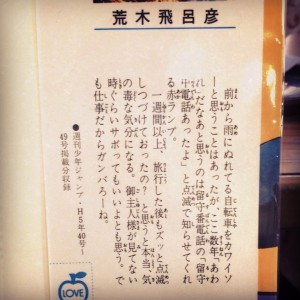 荒木飛呂彦
前から雨にぬれてる自転車をカワイソ
ーと思うことはあったが、ここ数年、あわ
れだなあと思うのは留守番電話の「留守
中電話あったよ」と点滅で知らせてくれ
る赤ランプ。
一週間以上、旅行した後もズッと点滅
しつづけておったの?と思うと本当、気
の毒な気分になる。御主人様が見てない
時ぐらいサボってもいいよとも思う。で
も仕事だからガンバろーね。
●週刊少年ジャンプ・H5年40号〜
49号掲載分収録
LOVE